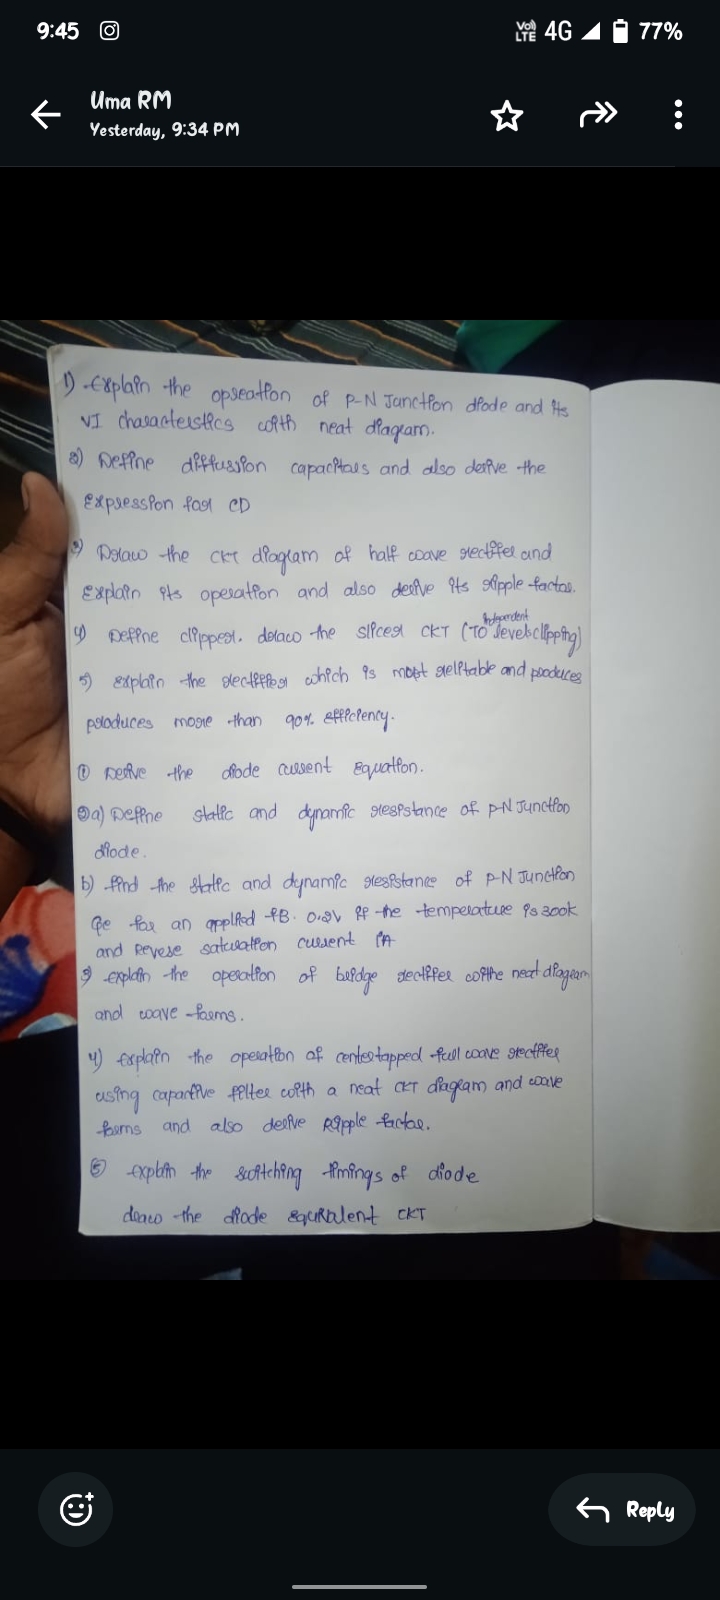 9:45
Vo) LTE 4G 77%
Uma RM
Yesterday, 9:34 PM
1) Explain the operation of P-N Junction diode and its
VI characteristics with neat diagram.
2) Define diffussion capacitaes and also derive the
Expression for CD
3) Draw the CKT diagram of half wave rectifier and
Explain its operation and also derive its ripple factor.
4) Define clipper. draw the slicer CKT (TO independent levels clipping)
5) explain the rectifier which is most relitable and produces
produces more than 90% efficiency.
① Derive the diode current Equation.
②a) Define static and dynamic resistance of P-N Junction
diode.
b) find the static and dynamic resistance of P-N Junction
Ge for an applied fB. 0.2V if the temperature is 300k
and Revese saturation current 1A
3) explain the operation of bridge rectifier withe neat diagram
and wave forms.
4) Explain the operation of centertapped full wave rectifier
using capacitive filter with a neat CKT diagram and wave
forms and also derive Ripple factor.
⑤ explain the switching timings of diode
draw the diode equivalent CKT
Reply